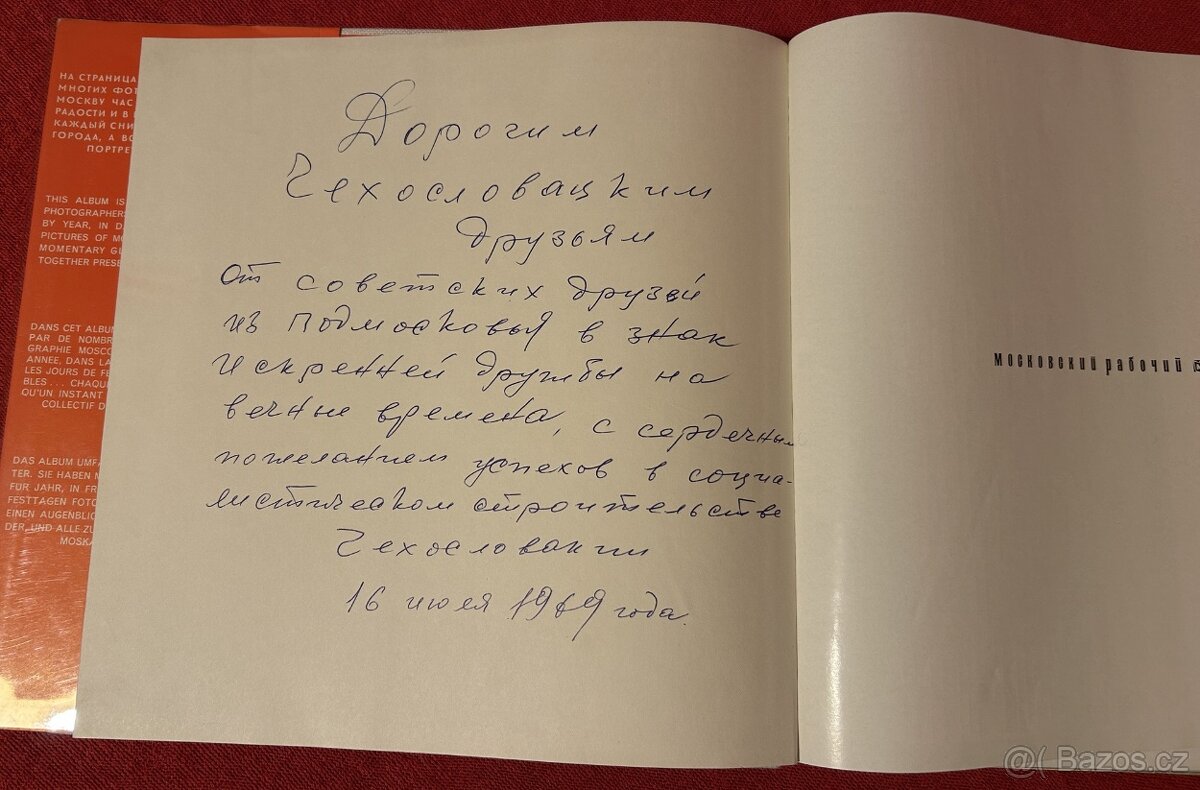 НА СТРАНИЦА
МНОГИХ ФОТ
МОСКВУ ЧАС
РАДОСТИ И В
КАЖДЫЙ СНИ
ГОРОДА, А ВС
ПОРТРЕ
THIS ALBUM IS
PHOTOGRAPHERS
BY YEAR, IN D
PICTURES OF MO
MOMENTARY GL
TOGETHER PRESE
DANS CET ALBU
PAR DE NOMBR
GRAPHIE MOSCO
ANNEE, DANS LA
LES JOURS DE FE
BLES... CHAQU
QU'UN INSTANT
COLLECTIF D
DAS ALBUM UMFA
TER. SIE HABEN M
FÜR JAHR, IN FR
FESTTAGEN FOTO
EINEN AUGENBLIC
DER, UND ALLE ZU
MOSKA
Дорогим
Чехословацким
друзьям
От советских друзей
из Подмосковья в знак
искренней дружбы на
вечные времена, с сердечным
пожеланием успехов в социа-
листическом строительстве
Чехословакии
16 июля 1969 года.
московский рабочий
@( Bazos.cz